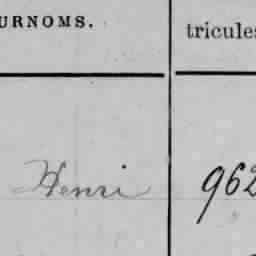 URNOMS.
tricules
Henri
962